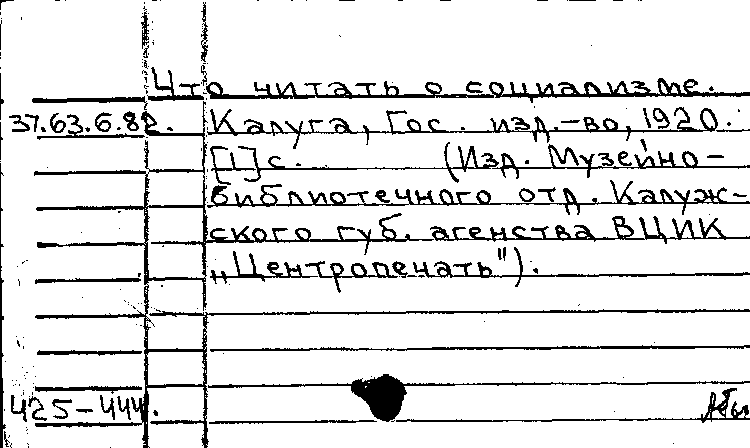 Что читать о социализме.
37.63.6.82. Калуга, Гос. изд.-во, 1920.
[1] с. (Изд. Музейно-
библиотечного отд. Калуж-
ского губ. агенства ВЦИК
„Центропечать").
425-444.